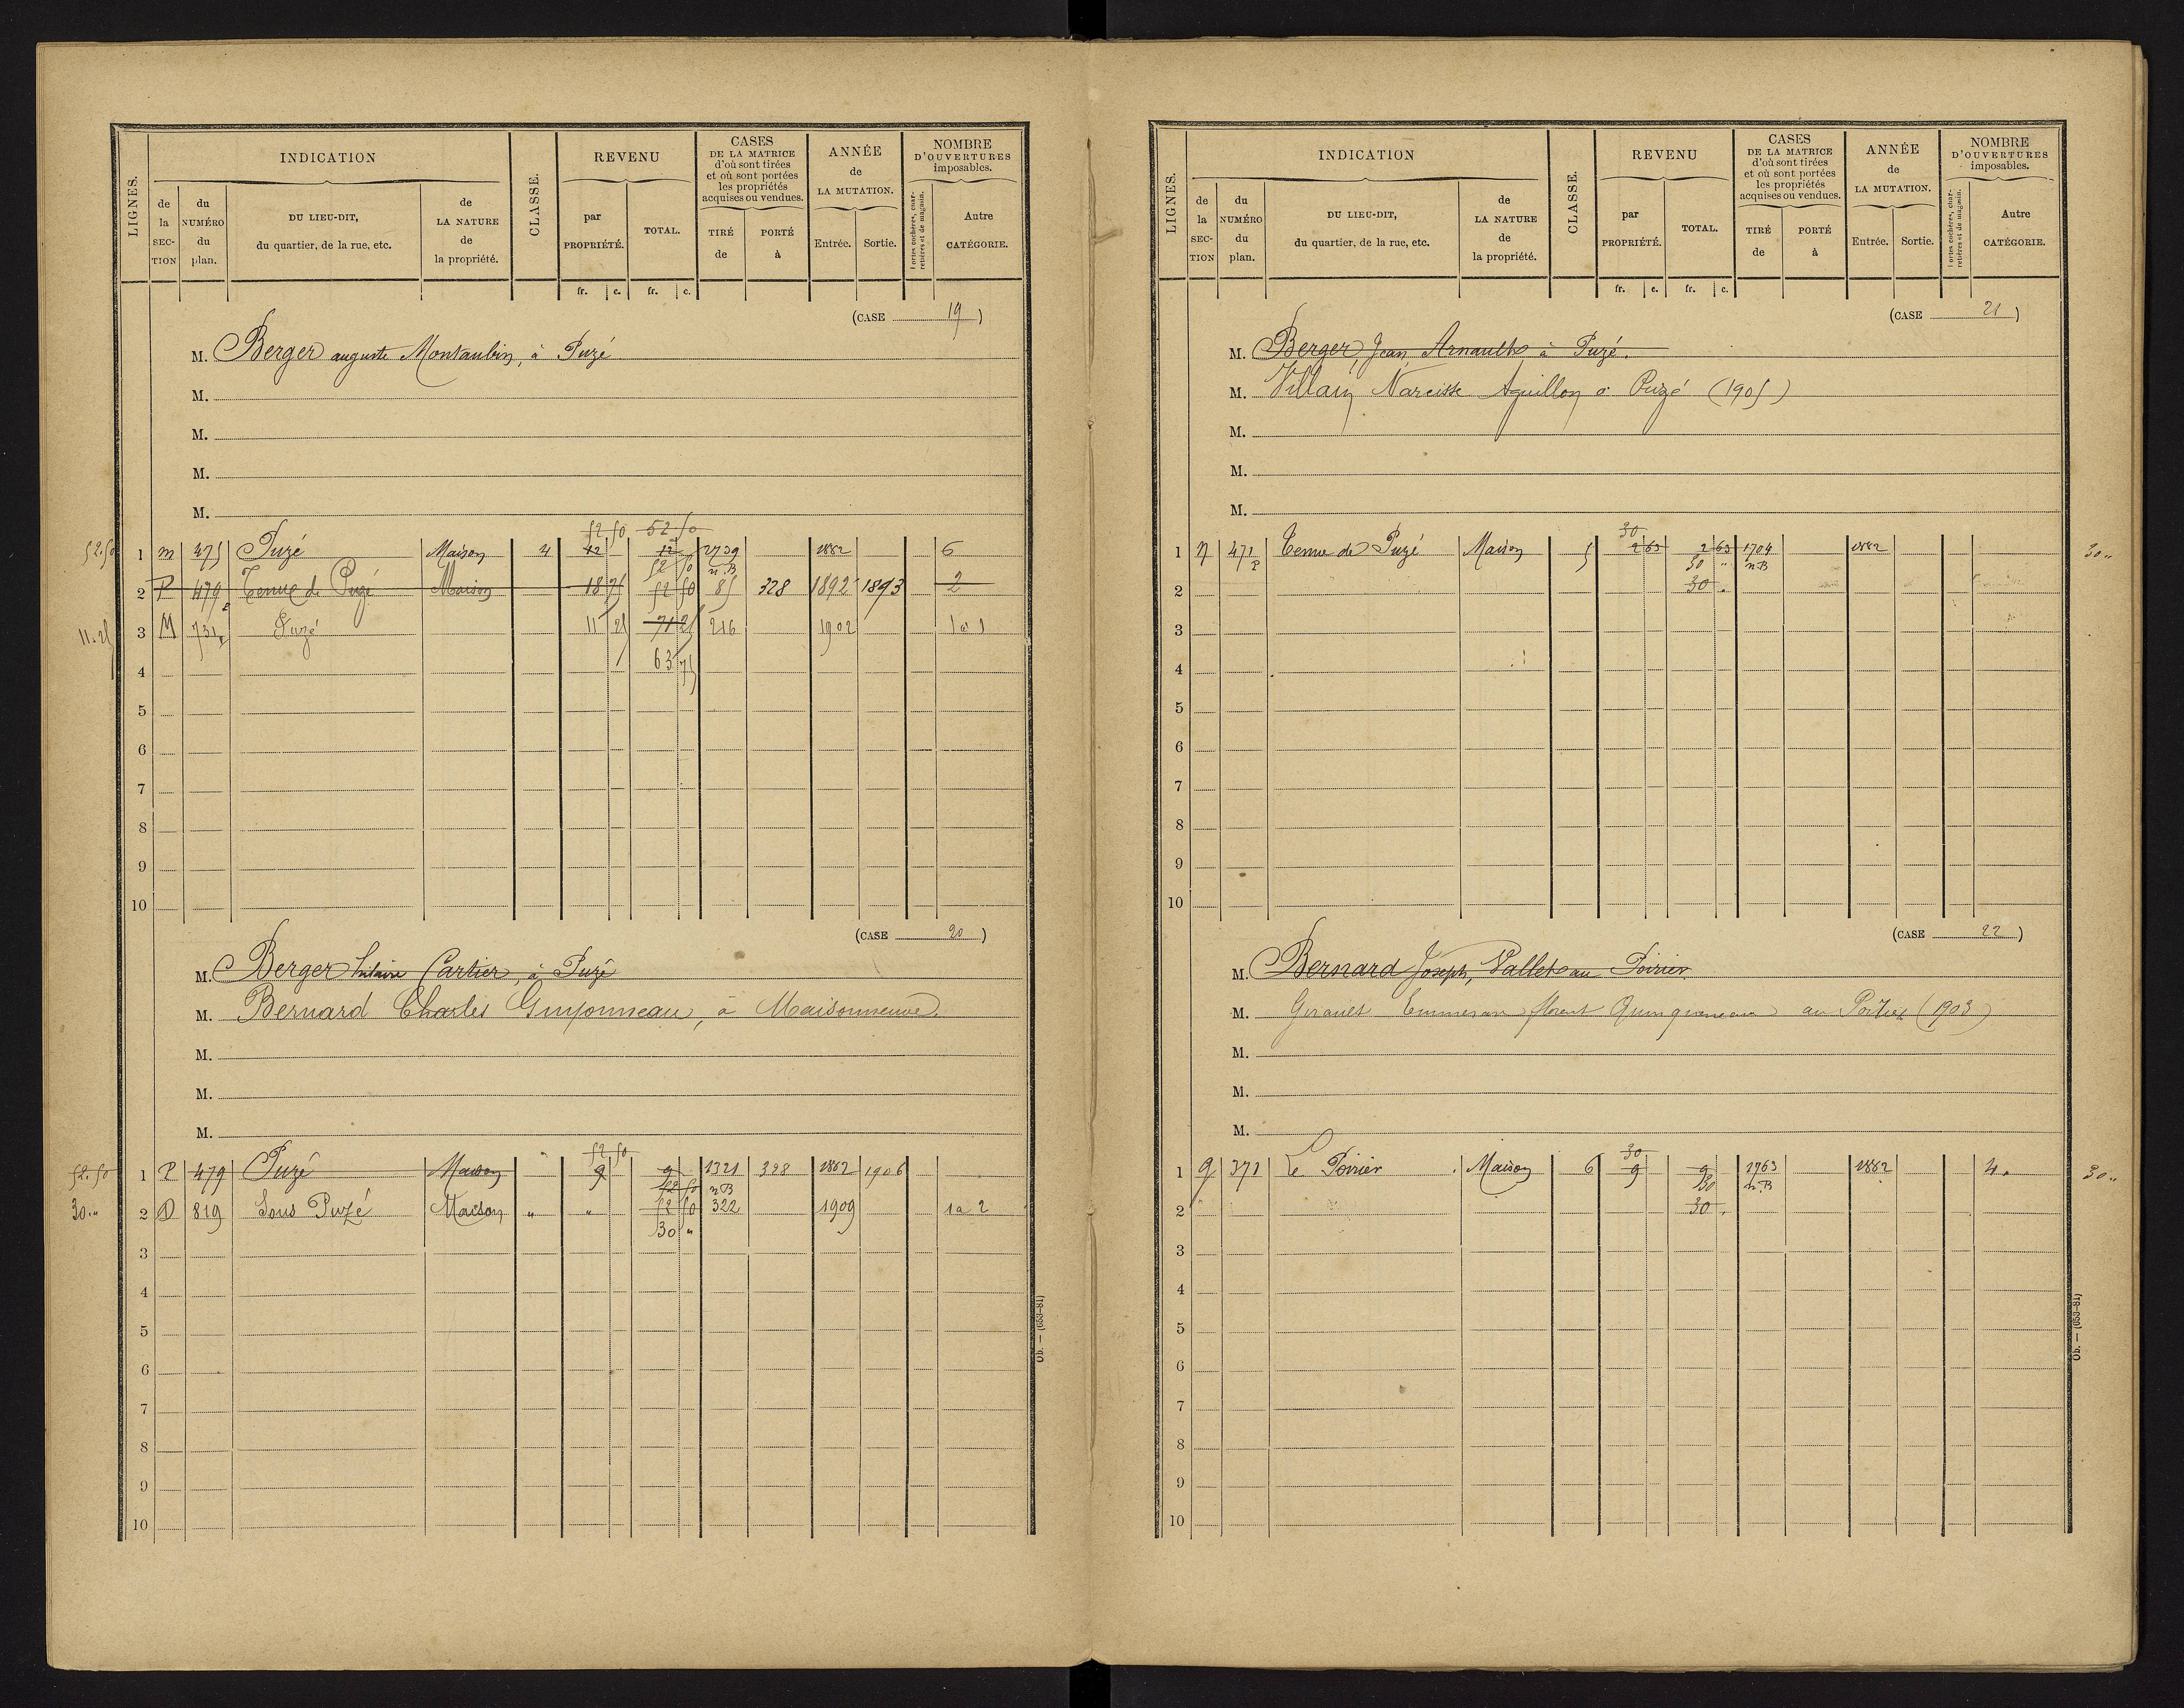 LIGNES.
INDICATION
de la SECTION
du NUMÉRO du plan.
DU LIEU-DIT, du quartier, de la rue, etc.
de LA NATURE de la propriété.
CLASSE.
REVENU
par PROPRIÉTÉ.
TOTAL.
CASES DE LA MATRICE d'où sont tirées et où sont portées les propriétés acquises ou vendues.
TIRÉ de
PORTÉ à
ANNÉE de LA MUTATION.
Entrée.
Sortie.
NOMBRE D'OUVERTURES imposables.
Portes cochères, charretières et de magasin.
Autre CATÉGORIE.
fr. c. fr. c.
(CASE 19)
M. Berger auguste Montaubin, à Puzé
M.
M.
M.
M.
52 50 52 50
52.50 1 m 475 Puzé Maison 4 42 12 2739 1882 6
52 50 n.B
2 P 479 Tenue de Puzé Maison 18 75 52 50 85 328 1892 1893 2
11.25 3 M 731 Puzé 11 25 71 25 216 1902 1 à 1
63 75
4
5
6
7
8
9
10
(CASE 20)
M. Berger hilaire Cartier, à Puzé
M. Bernard Charles Guyonneau, à Maisonneuve.
M.
M.
M.
52 50
52.50 1 P 479 Puzé Maison 9 9 1321 328 1882 1906
52 50 n B
30 „ 2 D 819 Sous Puzé Maison „ „ 52 50 322 1909 1 a 2
30 „
3
4
5
6
7
8
9
10
Ob. — (653-81)
LIGNES.
INDICATION
de la SECTION
du NUMÉRO du plan.
DU LIEU-DIT, du quartier, de la rue, etc.
de LA NATURE de la propriété.
CLASSE.
REVENU
par PROPRIÉTÉ.
TOTAL.
CASES DE LA MATRICE d'où sont tirées et où sont portées les propriétés acquises ou vendues.
TIRÉ de
PORTÉ à
ANNÉE de LA MUTATION.
Entrée.
Sortie.
NOMBRE D'OUVERTURES imposables.
Portes cochères, charretières et de magasin.
Autre CATÉGORIE.
fr. c. fr. c.
(CASE 21)
M. Berger, Jean Arnault, à Puzé.
M. Villain Narcisse Aguillon à Puzé (1905)
M.
M.
M.
30
1 n 471 P Tenue de Puzé Maison 5 2 63 2 63 1704 1882 30 „
30 „ n.B
2 30 „
3
4
5
6
7
8
9
10
(CASE 22)
M. Bernard Joseph, Vallet au Poirier
M. Girault Emmeran florent Quinqueneau au Poirier (1903)
M.
M.
M.
30
1 q 371 Le Poirier Maison 6 9 9 1763 1882 4 30 „
30 n.B
2 30 „
3
4
5
6
7
8
9
10
Ob. — (653-81)